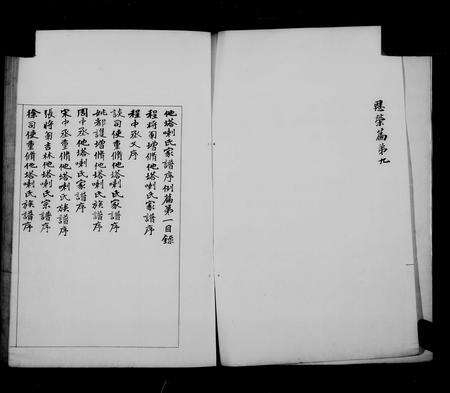 恩榮篇第九
他塔喇氏家譜序例篇第一目錄
程將軍增脩他塔喇氏家譜序
程中丞又序
談司使重脩他塔喇氏家譜序
姚都護增脩他塔喇氏族譜序
周中丞他塔喇氏家譜序
宋中丞重脩他塔喇氏族譜序
張將軍吉林他塔喇氏宗譜序
徐司使重脩他塔喇氏族譜序